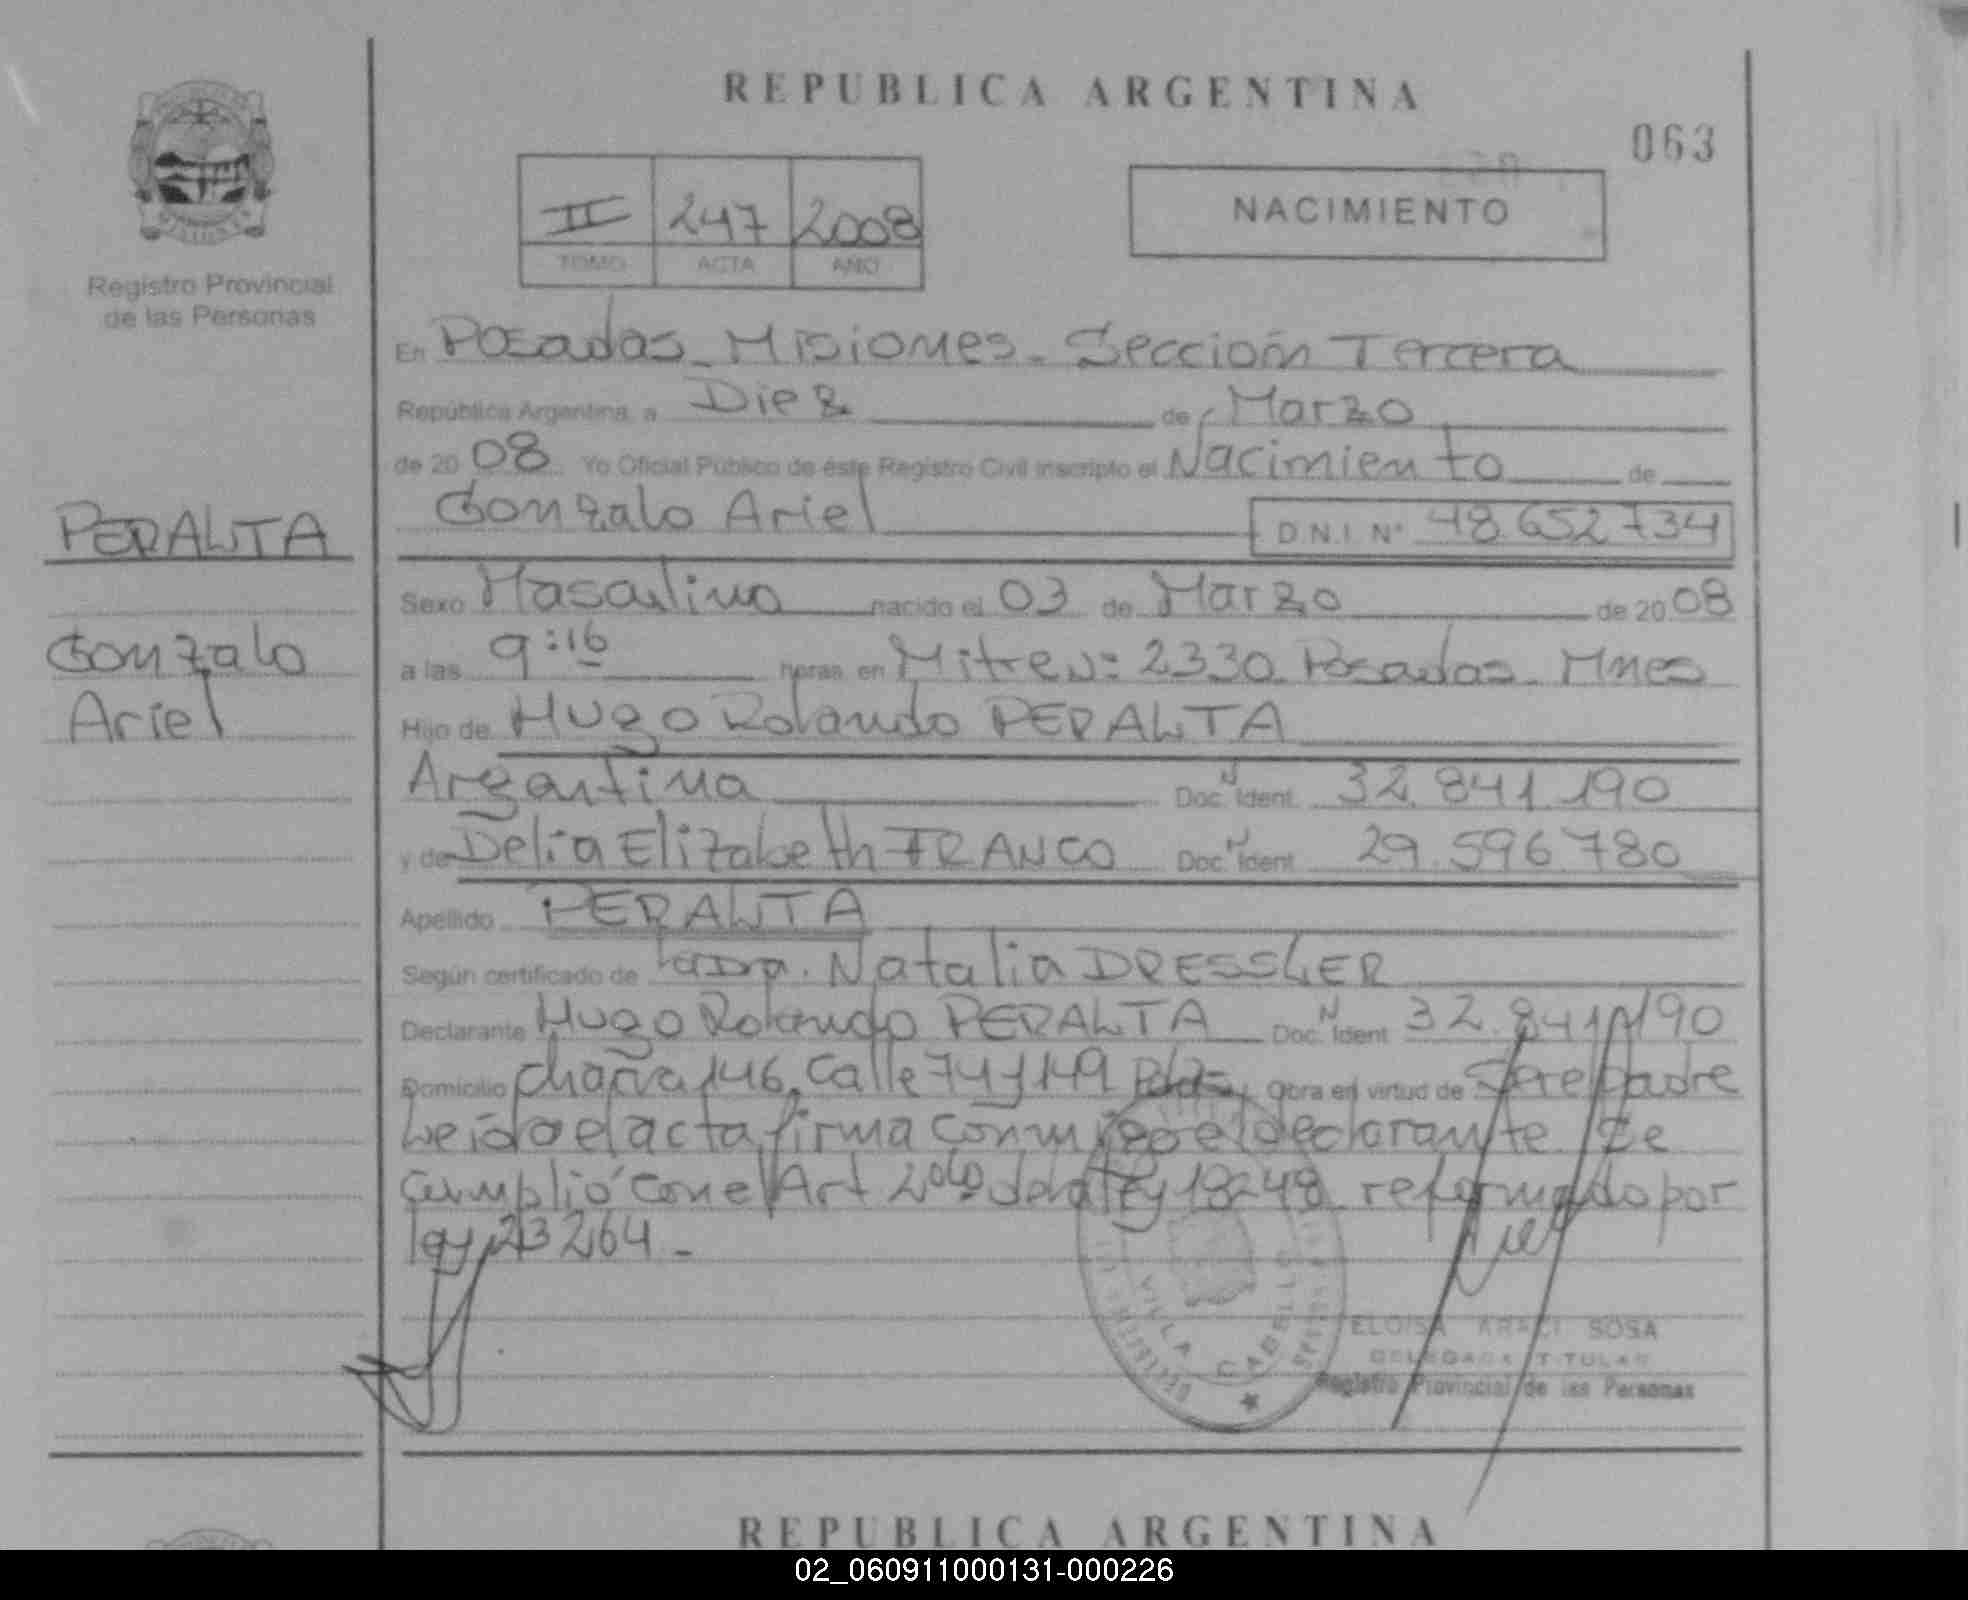 REPUBLICA ARGENTINA
063
II 247 2008
TOMO ACTA AÑO
NACIMIENTO
Registro Provincial
de las Personas
En Posadas - Misiones - Sección Tercera
República Argentina, a Diez de Marzo
de 2008 Yo Oficial Público de éste Registro Civil inscripto el Nacimiento de
Gonzalo Ariel D.N.I. N° 48.652.734
PERALTA
Gonzalo
Ariel
Sexo Masculino nacido el 03 de Marzo de 2008
a las 9:16 horas en Mitre N: 2330 Posadas - Mnes
Hijo de Hugo Rolando PERALTA
Argentina Doc. N Ident. 32.841.190
y de Delia Elizabeth FRANCO Doc. N Ident. 29.596.780
Apellido PERALTA
Según certificado de Dra. Natalia DRESSLER
Declarante Hugo Rolando PERALTA Doc. N Ident. 32.841.190
Domicilio chacra 146, Calle 74 y 149 Pdas Obra en virtud de Ser el padre
Leida el acta firma conmigo el declarante Se
cumplió con el Art 2do de la ley 18248 reformado por
ley 23264 -
VILLA CABELLO
ELOISA ARACI SOSA
DELEGADA TITULAR
Registro Provincial de las Personas
REPUBLICA ARGENTINA
02_060911000131-000226